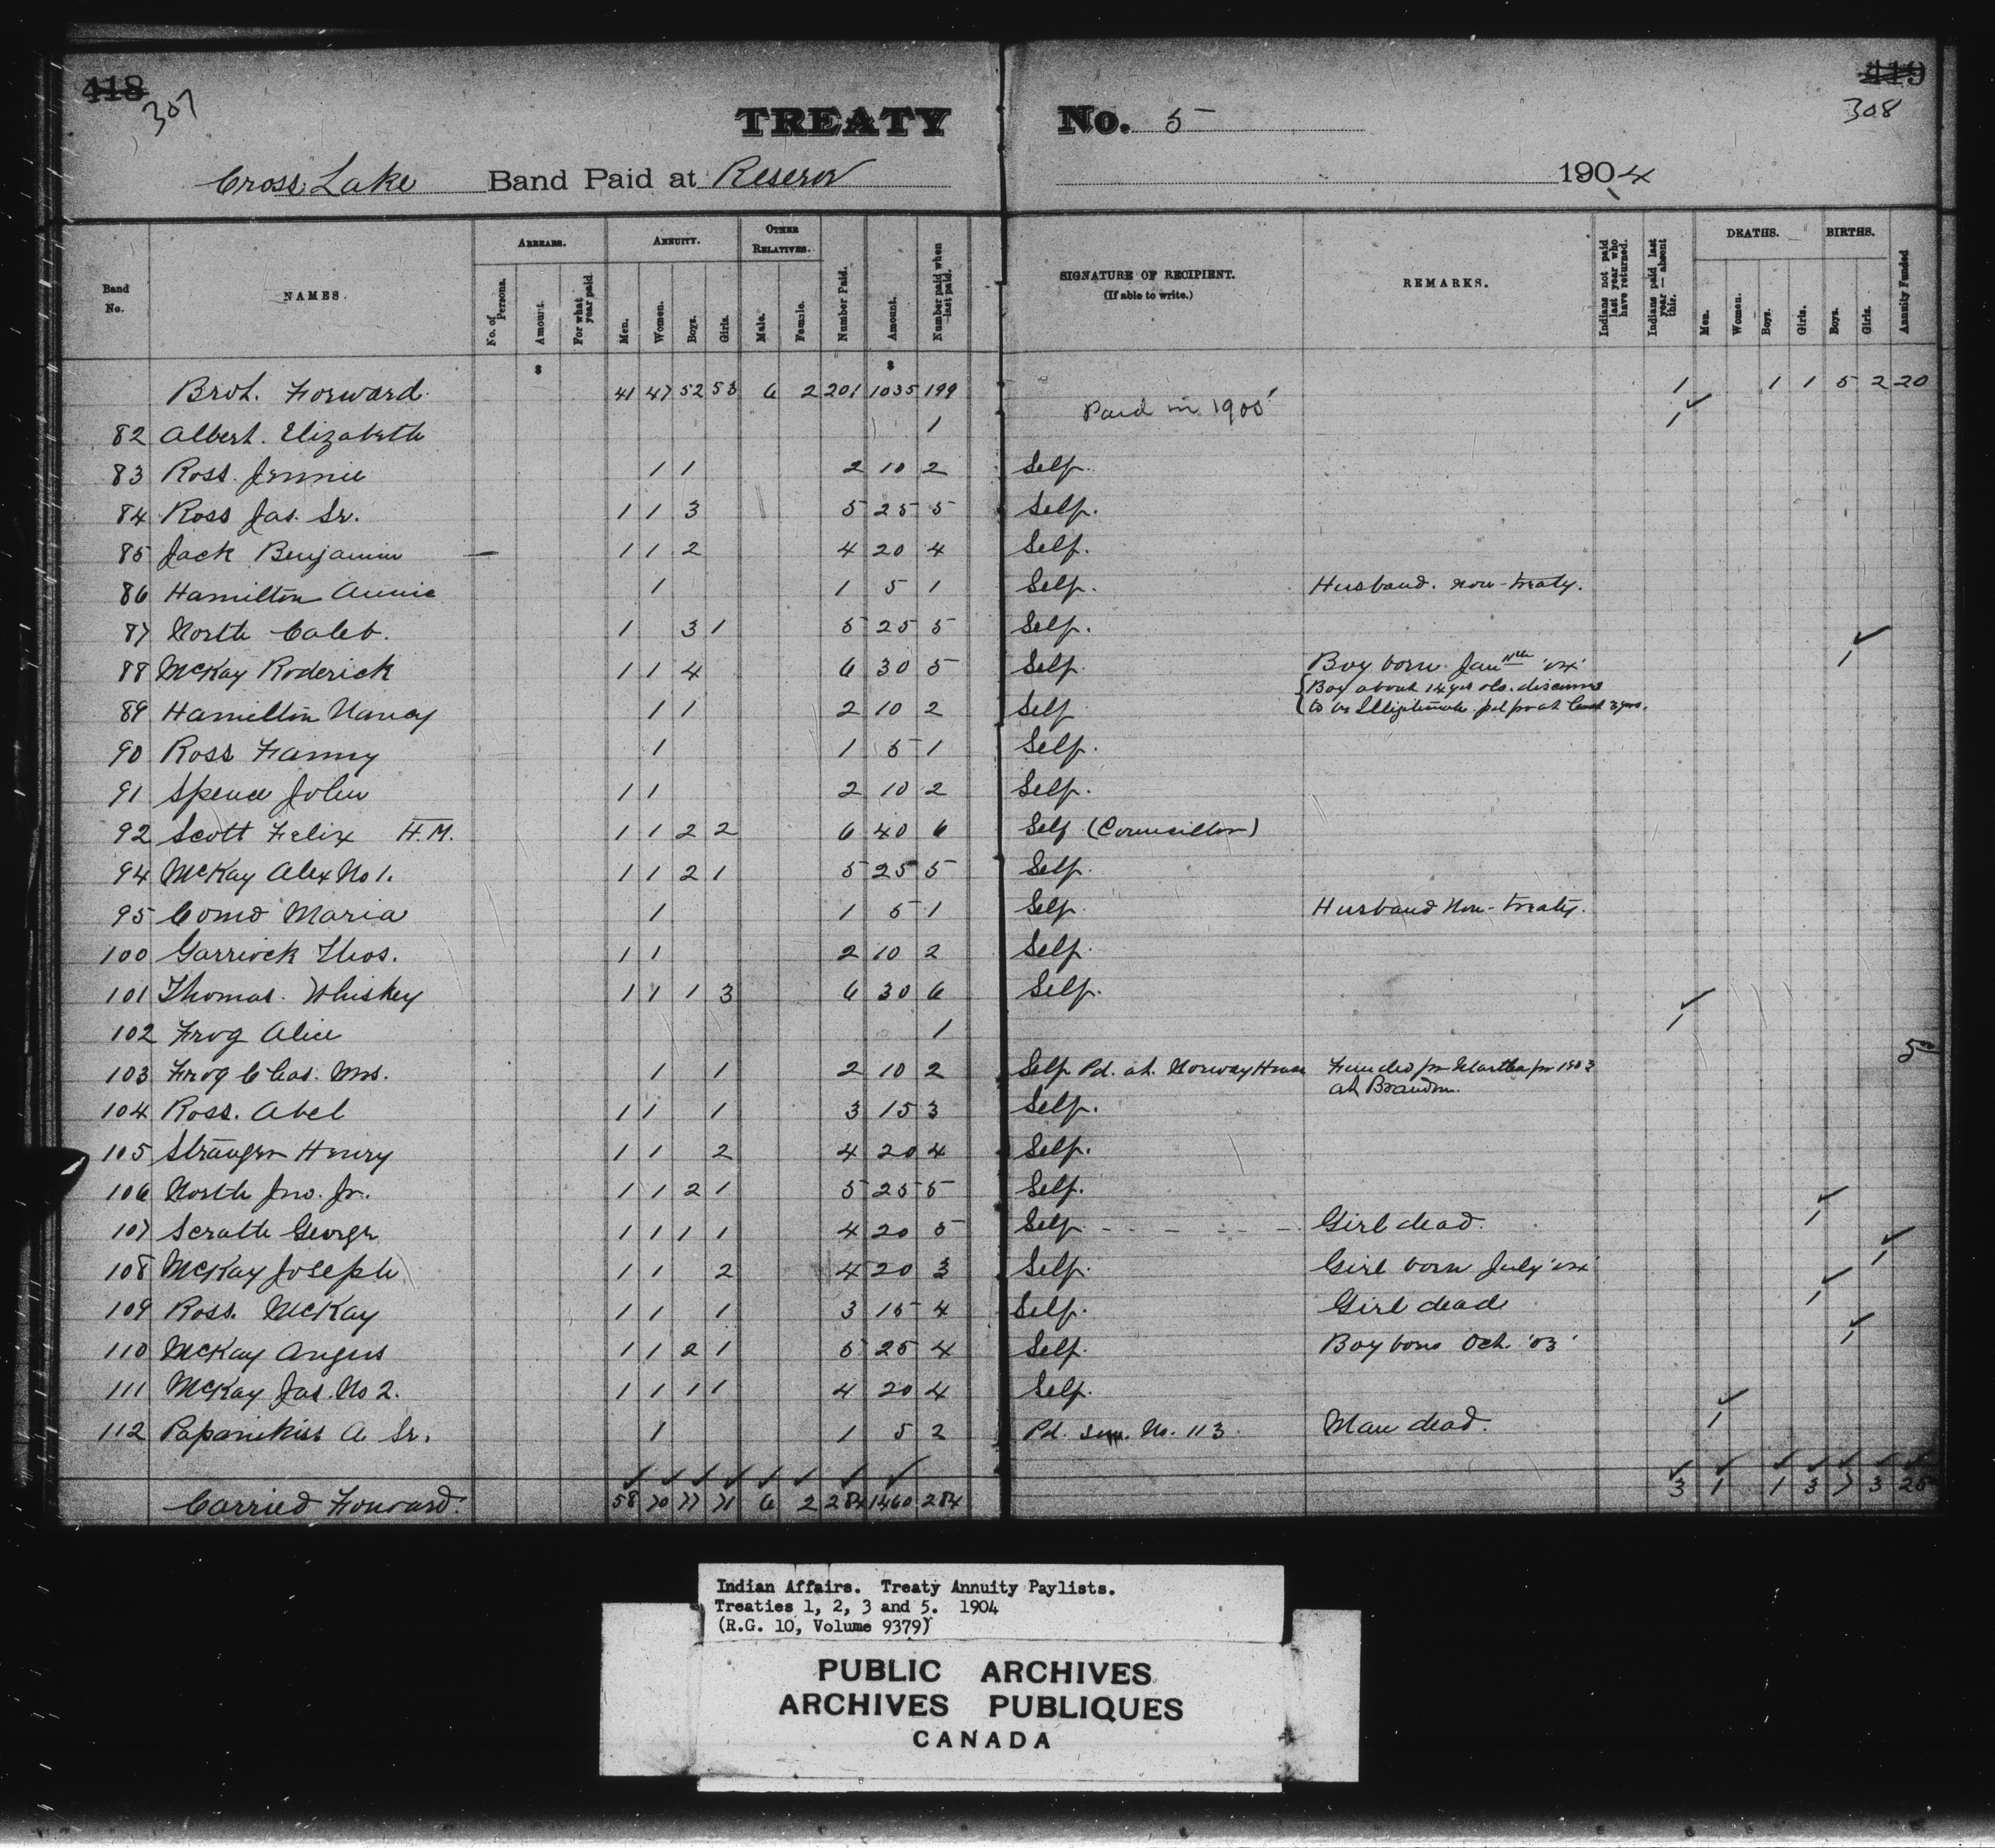 418 307
419 308
TREATY No. 5
Cross Lake Band Paid at Reserve 1904
Band No. NAMES. ARREARS. No. of Persons. Amount. For what year paid ANNUITY. Men. Women. Boys. Girls. OTHER RELATIVES. Male. Female. Number Paid. Amount. Number paid when last paid. SIGNATURE OF RECIPIENT. (If able to write.) REMARKS. Indians not paid last year who have returned. Indians paid last year—absent this. DEATHS. Men. Women. Boys. Girls. BIRTHS. Boys. Girls. Annuity Funded
$ $
Brot. Forward 41 47 52 53 6 2 201 1035 199 1 1 1 5 2 20
82 Albert. Elizabeth 1 Paid in 1905 1
83 Ross. Jennie 1 1 2 10 2 Self.
84 Ross Jas. Sr. 1 1 3 5 25 5 Self.
85 Jack Benjamin — 1 1 2 4 20 4 Self.
86 Hamilton Annie 1 1 5 1 Self. Husband. non-treaty.
87 North Caleb. 1 3 1 5 25 5 Self.
88 McKay Roderick 1 1 4 6 30 5 Self. Boy born Jan 11th '04' 1
89 Hamilton Nancy 1 1 2 10 2 Self {Boy about 14 yrs old. discovered
to be Illegitimate pd for at least 3 yrs.
90 Ross Fanny 1 1 5 1 Self.
91 Spence John 1 1 2 10 2 Self.
92 Scott Felix H.M. 1 1 2 2 6 40 6 Self (Councillor)
94 McKay Alex No 1. 1 1 2 1 5 25 5 Self.
95 Maria 1 1 5 1 Self. Husband Non-treaty.
100 Garriock Thos. 1 1 2 10 2 Self.
101 Thomas. Whiskey 1 1 1 3 6 30 6 Self.
102 Frog Alice 1 1
103 Frog Chas. Mrs. 1 1 2 10 2 Self Pd. at. Norway House Funded for Martha for 1903 5
at Brandon.
104 Ross. Abel 1 1 1 3 15 3 Self.
105 Stranger Henry 1 1 2 4 20 4 Self.
106 North Jno. Jr. 1 1 2 1 5 25 5 Self.
107 Scratte George 1 1 1 1 4 20 5 Self - - - - - Girl dead. 1
108 McKay Joseph 1 1 2 4 20 3 Self. Girl born July '04' 1
109 Ross. McKay 1 1 1 3 15 4 Self. Girl dead 1
110 McKay Angus 1 1 2 1 5 25 4 Self. Boy born Oct. '03' 1
111 McKay Jas. No 2. 1 1 1 1 4 20 4 Self.
112 Papanikiss A. Sr. 1 1 5 2 Pd. No. 113. Man dead. 1
Carried Forward. 58 70 77 71 6 2 284 1460 284 3 1 1 3 7 3 25
Indian Affairs. Treaty Annuity Paylists.
Treaties 1, 2, 3 and 5. 1904
(R.G. 10, Volume 9379)
PUBLIC ARCHIVES
ARCHIVES PUBLIQUES
CANADA